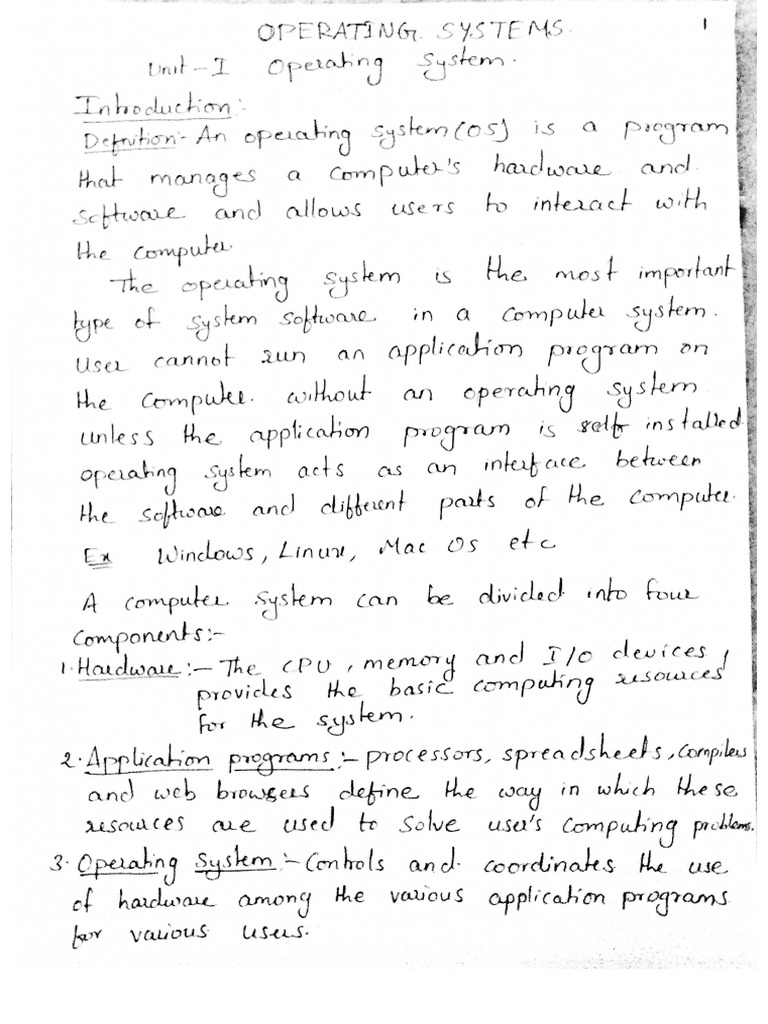 OPERATING SYSTEMS. 1
Unit-I Operating System.
Introduction:-
Definition:- An operating system(OS) is a program
that manages a computer's hardware and
software and allows users to interact with
the computer.
The operating system is the most important
type of system software in a computer system.
User cannot run an application program on
the computer. without an operating system
unless the application program is self installed.
operating system acts as an interface between
the software and different parts of the computer.
Ex Windows, Linux, Mac OS etc
A computer system can be divided into four
components:-
1. Hardware:- The CPU, memory and I/O devices,
provides the basic computing resources
for the system.
2. Application programs:- processors, spreadsheets, compilers
and web browsers define the way in which these
resources are used to solve user's computing problems.
3. Operating System:- Controls and coordinates the use
of hardware among the various application programs
for various users.